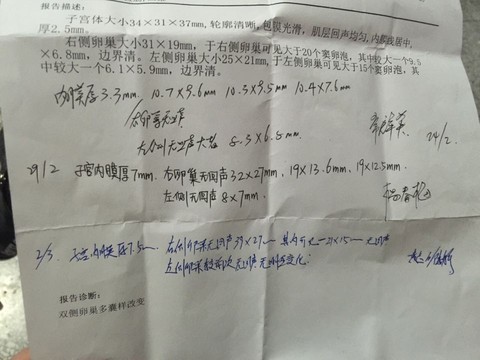 报告描述:
子宫体大小34×31×37mm, 轮廓清晰, 包膜光滑, 肌层回声均匀, 内膜线居中,
厚2.5mm。
右侧卵巢大小31×19mm, 于右侧卵巢可见大于20个窦卵泡, 其中较大一个9.5
×6.8mm, 边界清。左侧卵巢大小25×21mm, 于左侧卵巢可见大于15个窦卵泡, 其
中较大一个6.1×5.9mm, 边界清。
内膜厚3.3mm. 10.7×9.6mm 10.3×9.5mm 10.4×7.6mm
右卵巢无回声
左侧无回声大者 8.5×6.8mm 24/2.
29/2 子宫内膜厚7mm. 右卵巢无回声32×27mm, 19×13.6mm, 19×12.5mm
左侧无回声8×7mm.
2/3. 子宫内膜厚7.5mm. 右侧卵巢无回声39×27mm 其内可见一21×15mm无回声
左侧卵巢较前次无回声无明显变化.
报告诊断:
双侧卵巢多囊样改变